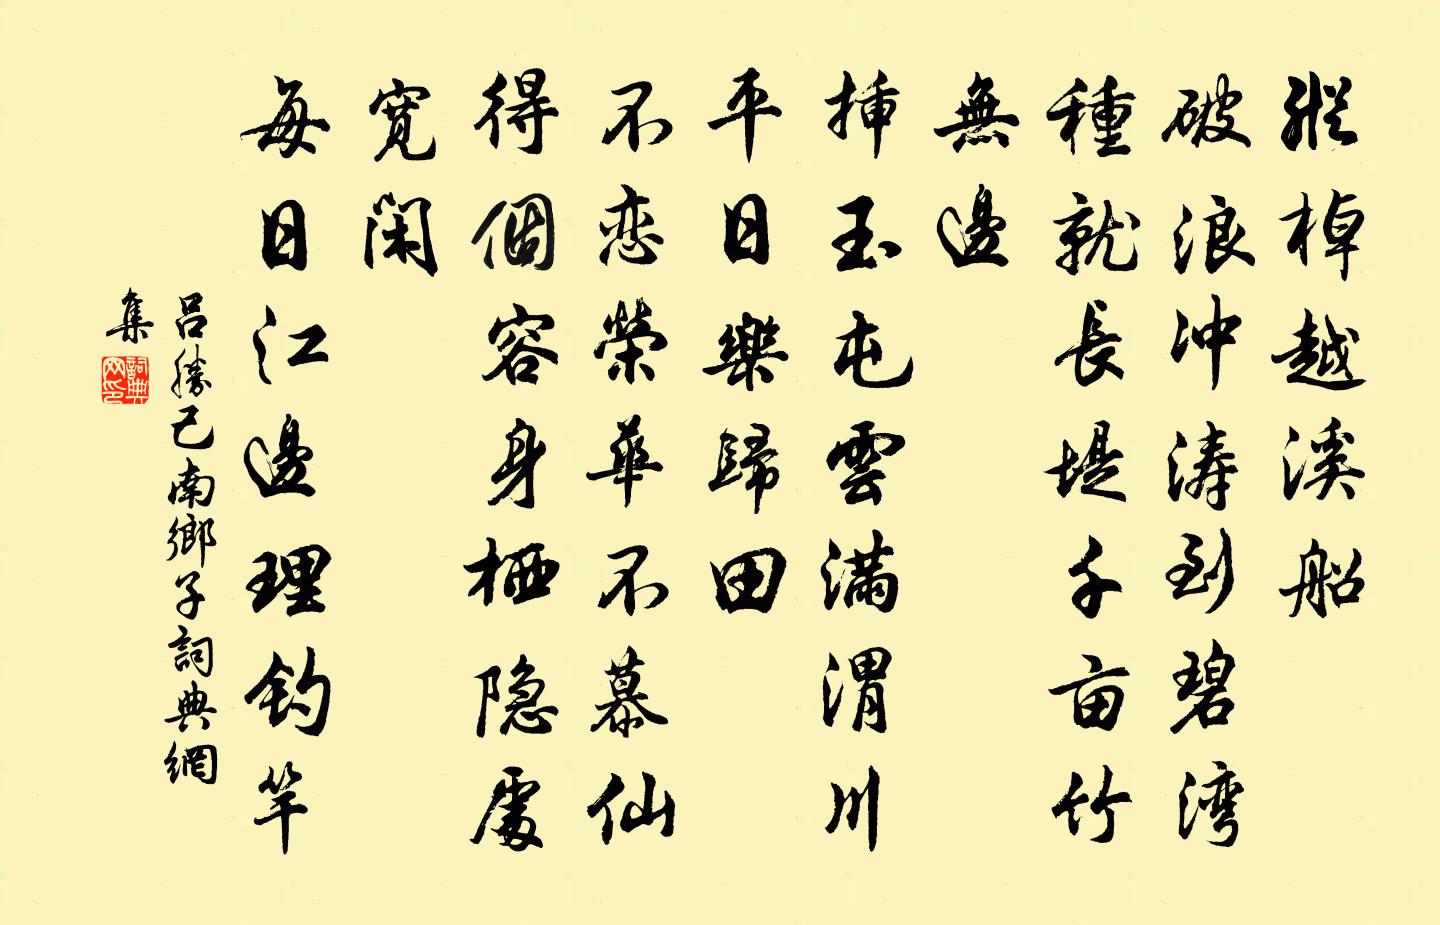 縱棹越溪船
破浪冲涛到碧湾
種就長堤千亩竹
無邊
挿玉屯雲满渭川
平日樂歸田
不恋榮華不慕仙
得個容身栖隐處
寛閑
每日江邊理釣竿
吕勝己南鄉子詞典網
集
詞典網印